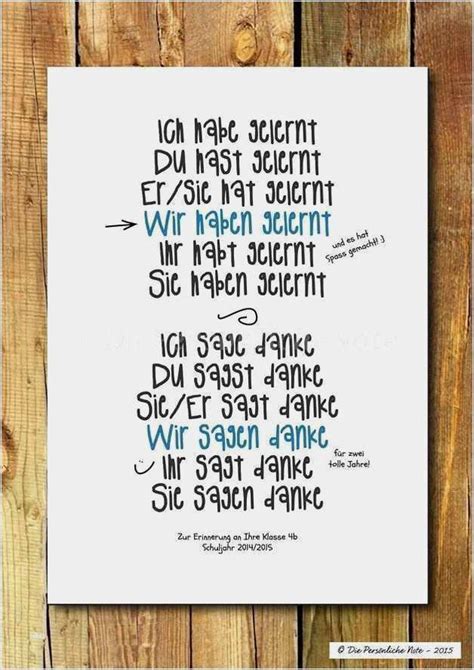 Ich habe gelernt
Du hast gelernt
Er/Sie hat gelernt
Wir haben gelernt
Ihr habt gelernt
und es hat
Spass gemacht! :)
Sie haben gelernt
Ich sage danke
Du sagst danke
Sie/Er sagt danke
Wir sagen danke
Ihr sagt danke
für zwei
tolle Jahre!
Sie sagen danke
Zur Erinnerung an Ihre Klasse 4b
Schuljahr 2014/2015
© Die Persönliche Note - 2015